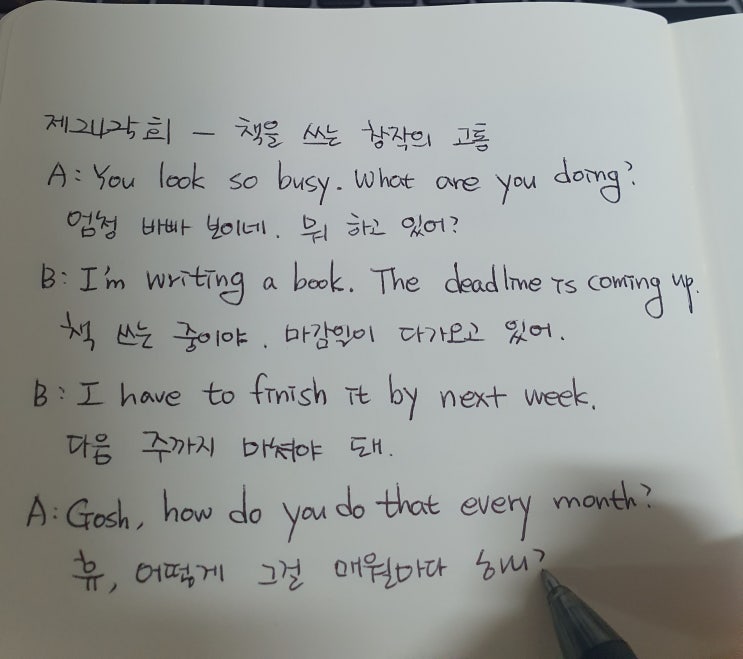 제2425회 - 책을 쓰는 창작의 고통
A: You look so busy. What are you doing?
엄청 바빠 보이네. 뭐 하고 있어?
B: I'm writing a book. The deadline is coming up.
책 쓰는 중이야. 마감일이 다가오고 있어.
B: I have to finish it by next week.
다음 주까지 마쳐야 돼.
A: Gosh, how do you do that every month?
휴, 어떻게 그걸 매월마다 하니?